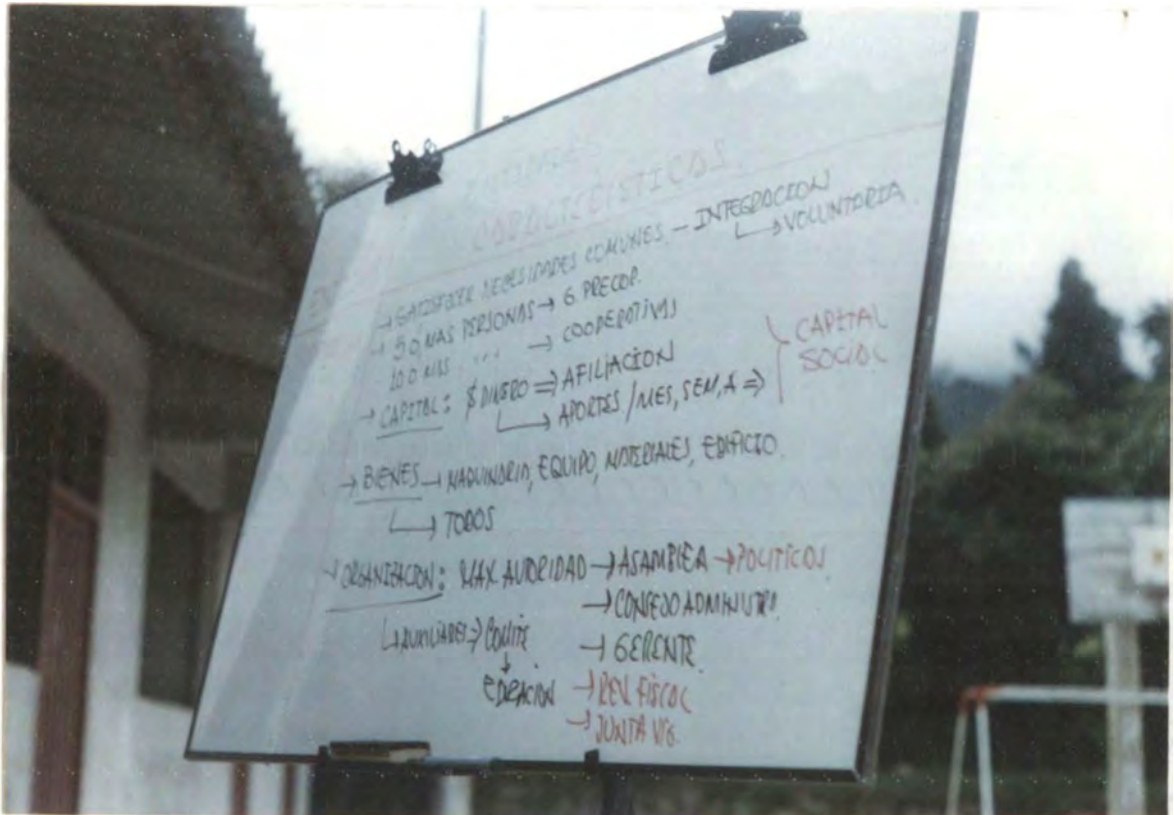 CARACTERISTICAS
→ SATISFACER NECESIDADES COMUNES. – INTEGRACION
↳ VOLUNTARIA.
→ 5 O MAS PERSONAS → G. PRECOP.
10 O MAS " " → COOPERATIVAS
→ CAPITAL: $ DINERO ⇒ AFILIACION
↳ APORTES / MES, SEM, A ⇒
CAPITAL
SOCIAL
→ BIENES → MAQUINARIA, EQUIPO, MATERIALES, EDIFICIO.
↳ TODOS
→ ORGANIZACION: MAX. AUTORIDAD → ASAMBLEA → POLITICOS
→ CONSEJO ADMINISTRA.
↳ AUXILIARES → COMITE → GERENTE.
↓
EDUCACION → REV. FISCAL
→ JUNTA VIG.